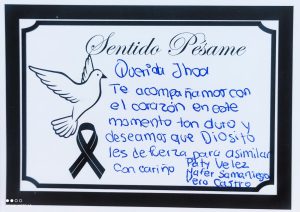 Sentido Pésame
Querida Jhoa
Te acompañamos con
el corazón en este
momento tan duro y
deseamos que Diosito
les de fuerza para asimilar
Con cariño Paty Velez
Mafer Samaniego
Vero Castro